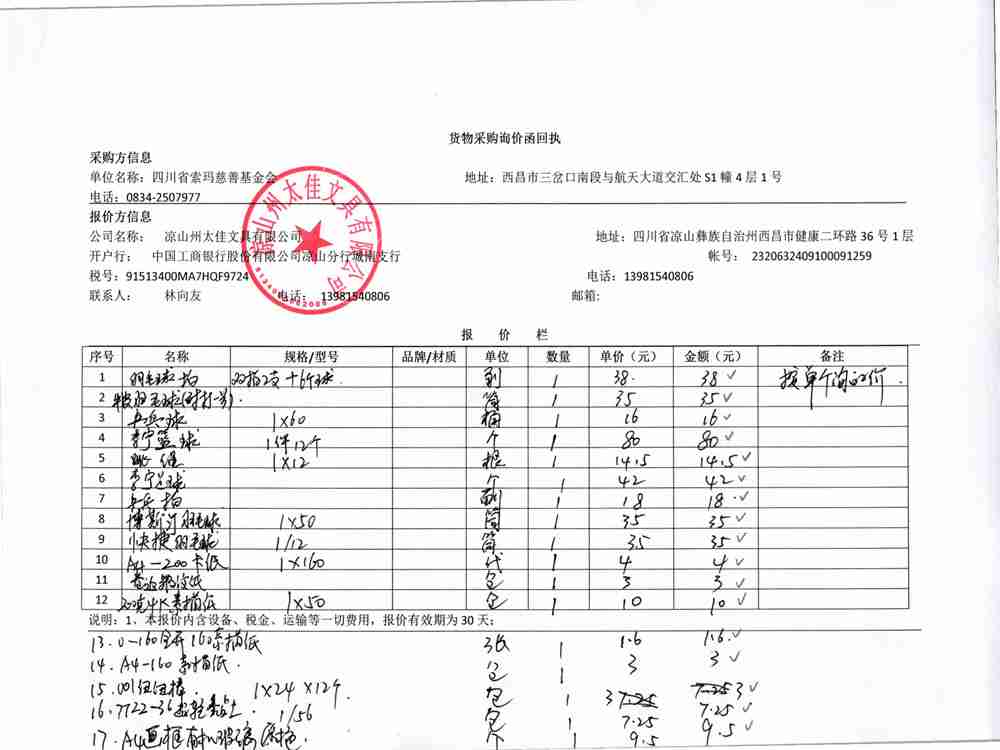 货物采购询价函回执
采购方信息
单位名称：四川省索玛慈善基金会 地址：西昌市三岔口南段与航天大道交汇处 S1 幢 4 层 1 号
电话：0834-2507977
报价方信息
公司名称： 凉山州太佳文具有限公司 地址：四川省凉山彝族自治州西昌市健康二环路 36 号 1 层
开户行： 中国工商银行股份有限公司凉山分行城南支行 帐号： 2320632409100091259
税号：91513400MA7HQF9724 电话：13981540806
联系人： 林向友 电话： 13981540806 邮箱:
凉山州太佳文具有限公司
报 价 栏
序号 名称 规格/型号 品牌/材质 单位 数量 单价（元） 金额（元） 备注
1 羽毛球拍 双拍2支+6个球. 副 1 38. 38 ✓ 按单个询的价.
2 羽毛球 筒 1 35 35 ✓
3 乒乓球 1×60 桶 1 16 16 ✓
4 李宁篮球 1件12个 个 1 80 80 ✓
5 跳绳 1×12 根 1 14.5 14.5 ✓
6 李宁足球 个 1 42 42 ✓
7 乒乓拍 副 1 18 18 ✓
8 羽毛球 1×50 筒 1 35 35 ✓
9 快捷羽毛球 1/12 筒 1 35 35 ✓
10 A4-200卡纸 1×160 代 1 4 4 ✓
11 包 1 3 3 ✓
12 4K素描纸 1×50 包 1 10 10 ✓
说明：1、本报价内含设备、税金、运输等一切费用，报价有效期为 30 天；
13.0-160全开160素描纸 张 1 1.6 1.6 ✓
14. A4-160素描纸. 包 1 3 3 ✓
15. 001 1×24×12个. 包 1 3 3 ✓
16. 7722-36超轻黏土. 1/56 包 1 7.25 7.25 ✓
17. A4画框 个 1 9.5 9.5 ✓